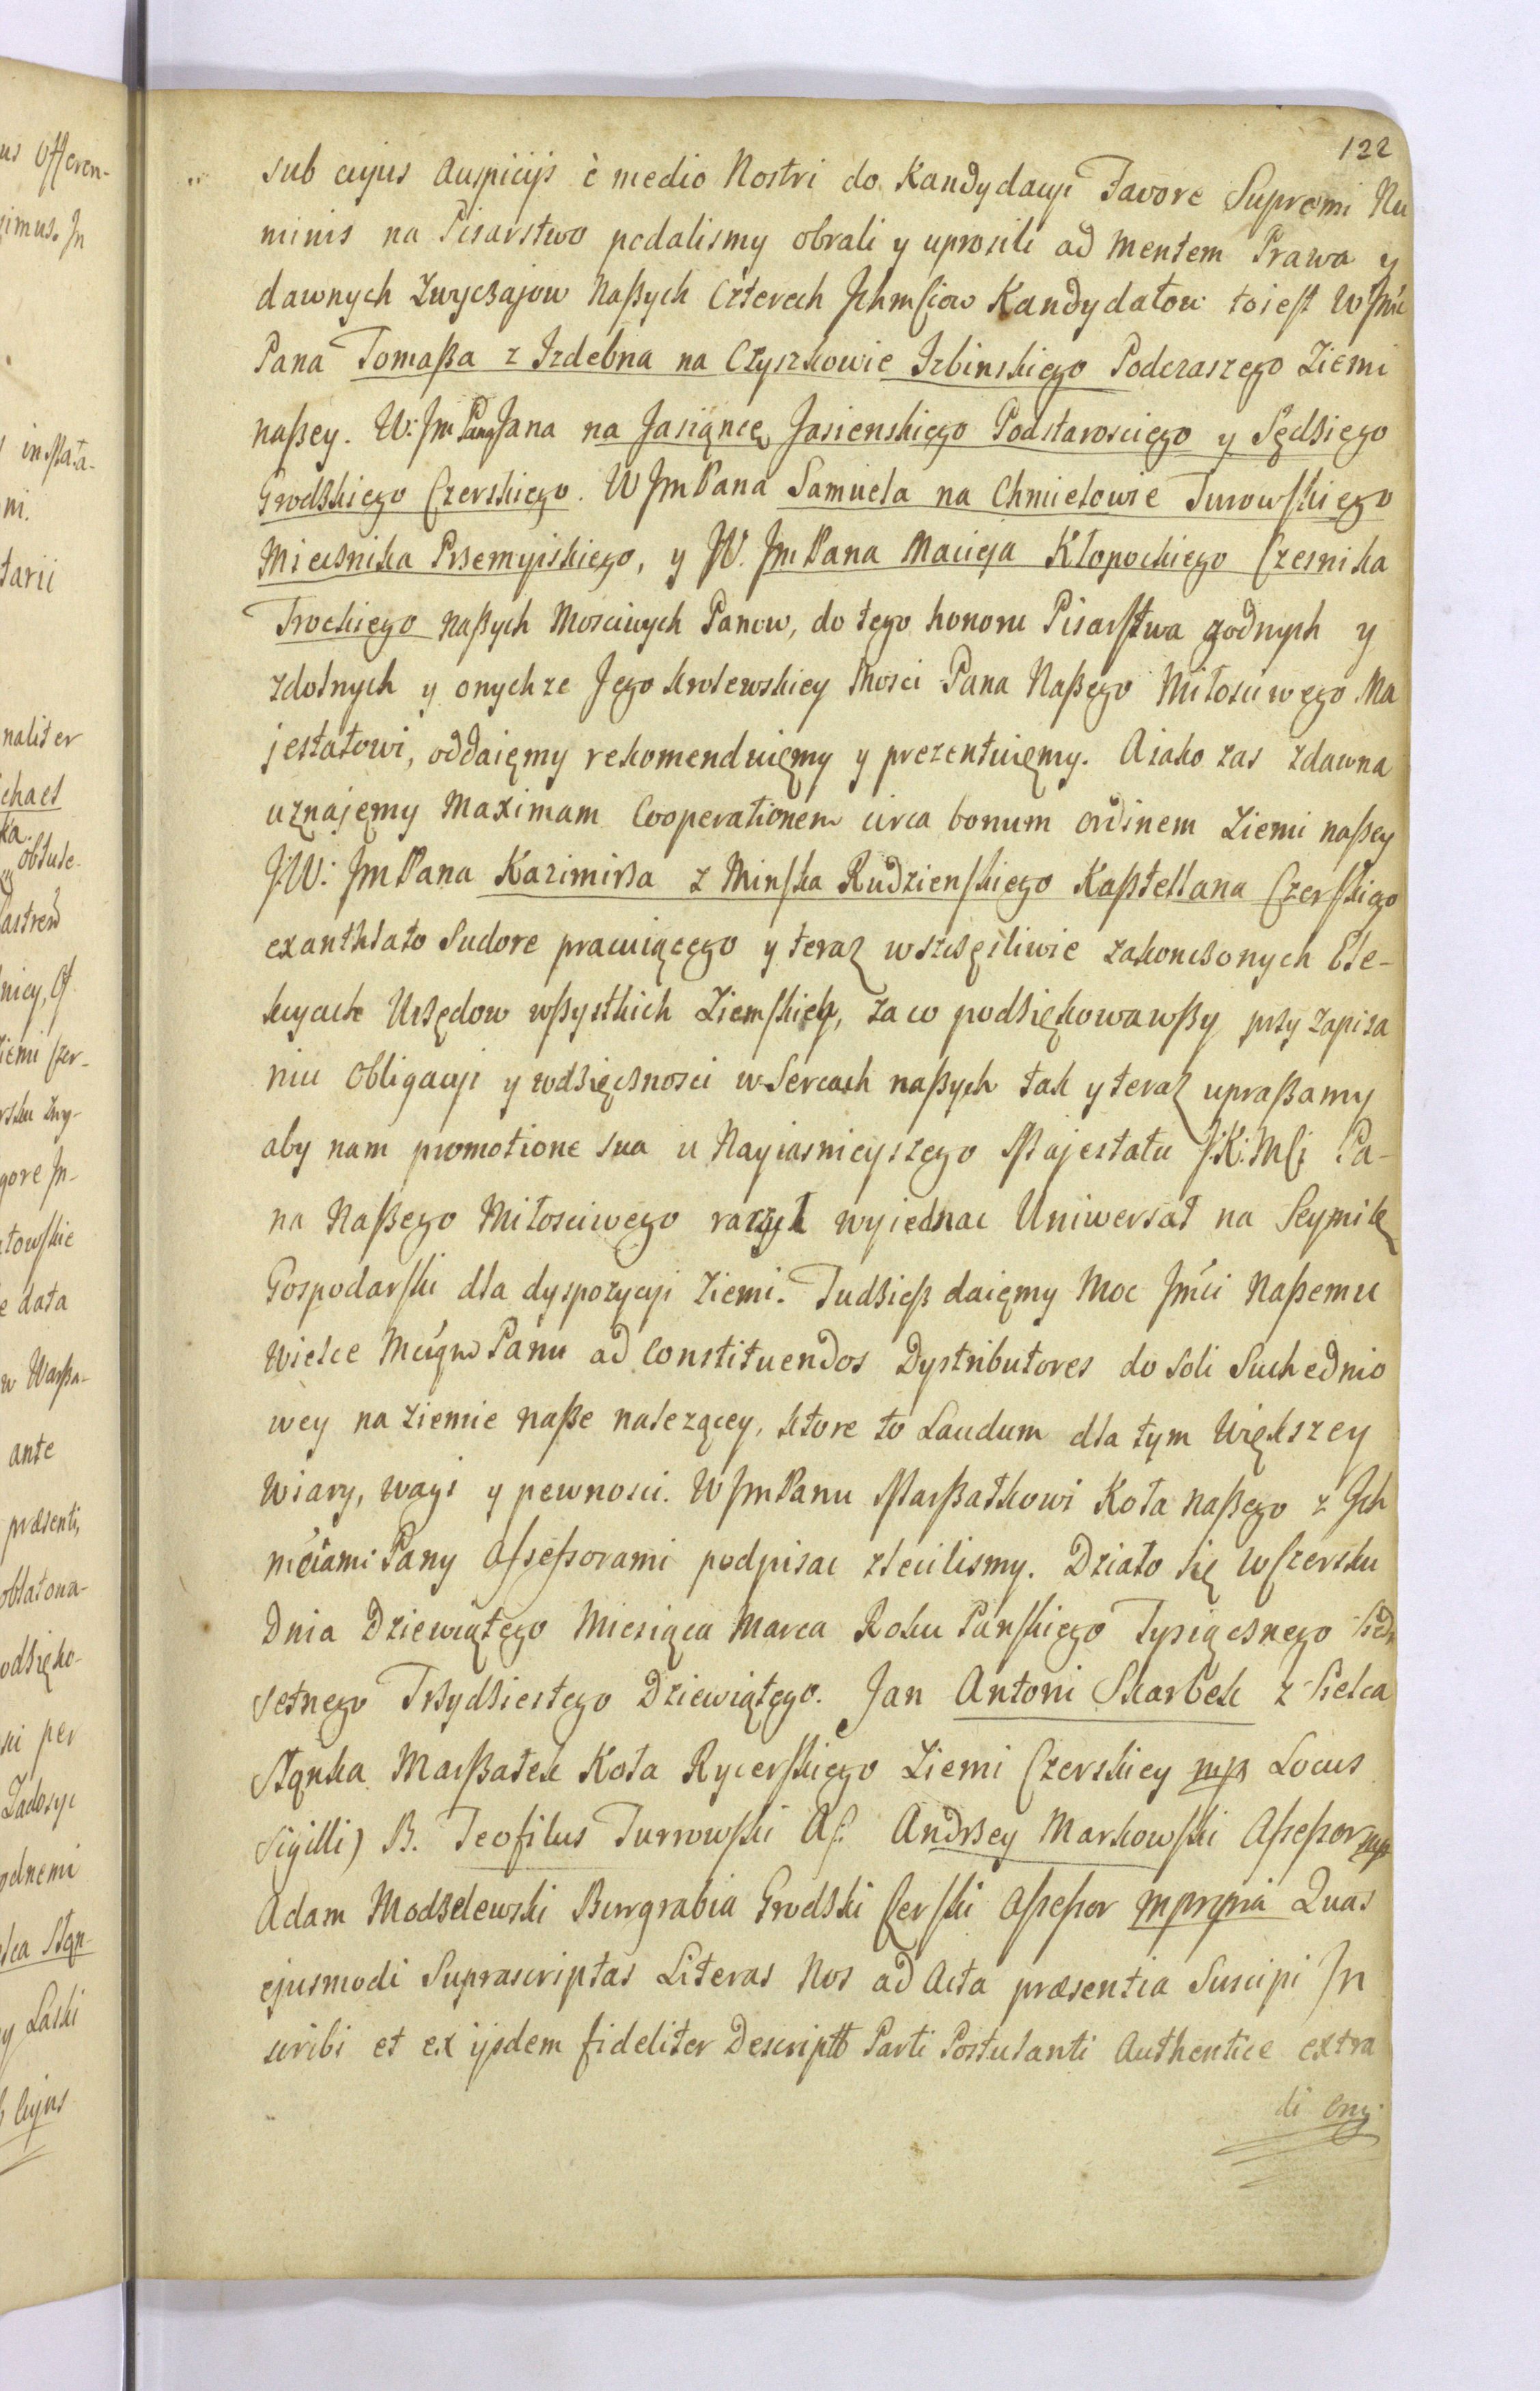 122
sub cujus Auspicijs è medio Nostri do Kandydacyi Favore Supremi Nu
minis na Pisarstwo podalismy obrali y uprosili ad mentem Prawa y
dawnych Zwyczajow Naßych Czterech Jchmsciow Kandydatow toiest WJmci
Pana Tomaßa z Izdebna na Czyszkowie Izbinskiego Podczaszego Ziemi
naßey. W: Jm Pana Jana na Jasiąncę Jasienskiego Podstarosciego y Sędziego
Grodzkiego Czerskiego. WJmPana Samuela na Chmielowie Turowskiego
Miecznika Przemyiskiego, y W. JmPana Macieja Kłopockiego Czesnika
Trockiego Naßych Mosciwych Panow, do tego honoru Pisarstwa godnych y
zdolnych y onychze Jego Krolewskiey Mosci Pana Naßego Miłosciwego Ma
jestatowi, oddaięmy rekomenduięmy y prezentuięmy. Aiako zas zdawna
uznajęmy Maximam Cooperationem circa bonum ordinem Ziemi naßey
J:W: JmPana Kazimirza z Minska Rudzienskiego Kasztellana Czerskiego
exanthlato Sudore pracuiącego y teraz wszczęsliwie zakonczonych Ele-
kcyach Urzędow wßystkich Ziemskich, za co podziękowawßy przy zapisa
niu Obligacyi y wdzięcznosci w Sercach naßych tak y teraz upraßamy
aby nam promotione sua u Nayiasnieyszego Majestatu J:K:Mci Pa-
na Naßego Miłosciwego raczył wyiednac Uniwersał na Seymik
Gospodarski dla dyspozycyi Ziemi. Tudzieß daięmy Moc Jmci Naßemu
Wielce Mciwu Panu ad Constituendos Dystributores do Soli Suchednio
wey na Ziemie naße nalezącey, ktore to Laudum dla tym Większey
Wiary, wagi y pewnosci. WJmPanu Marßałkowi Koła Naßego z Jch
mciami Pany Assessorami podpisac zlecilismy. Działo się w Czersku
Dnia Dziewiątego Miesiąca Marca Roku Panskiego Tysiącznego Siedm
setnego Trzydziestego Dziewiątego. Jan Antoni Skarbek z Sielca
Stąnka Marßałek Koła Rycerskiego Ziemi Czerskiey mp Locus
Sigilli) B. Teofilus Turrowski As: Andrzey Markowski Aßeßor mp
Adam Modzelewski Burgrabia Grodzki Cerski Aßeßor mpropria Quas
ejusmodi Suprascriptas Literas Nos ad Acta præsentia Suscipi In
scribi et ex ijsdem fideliter Descriptt Parti Postulanti Authentice extra
di